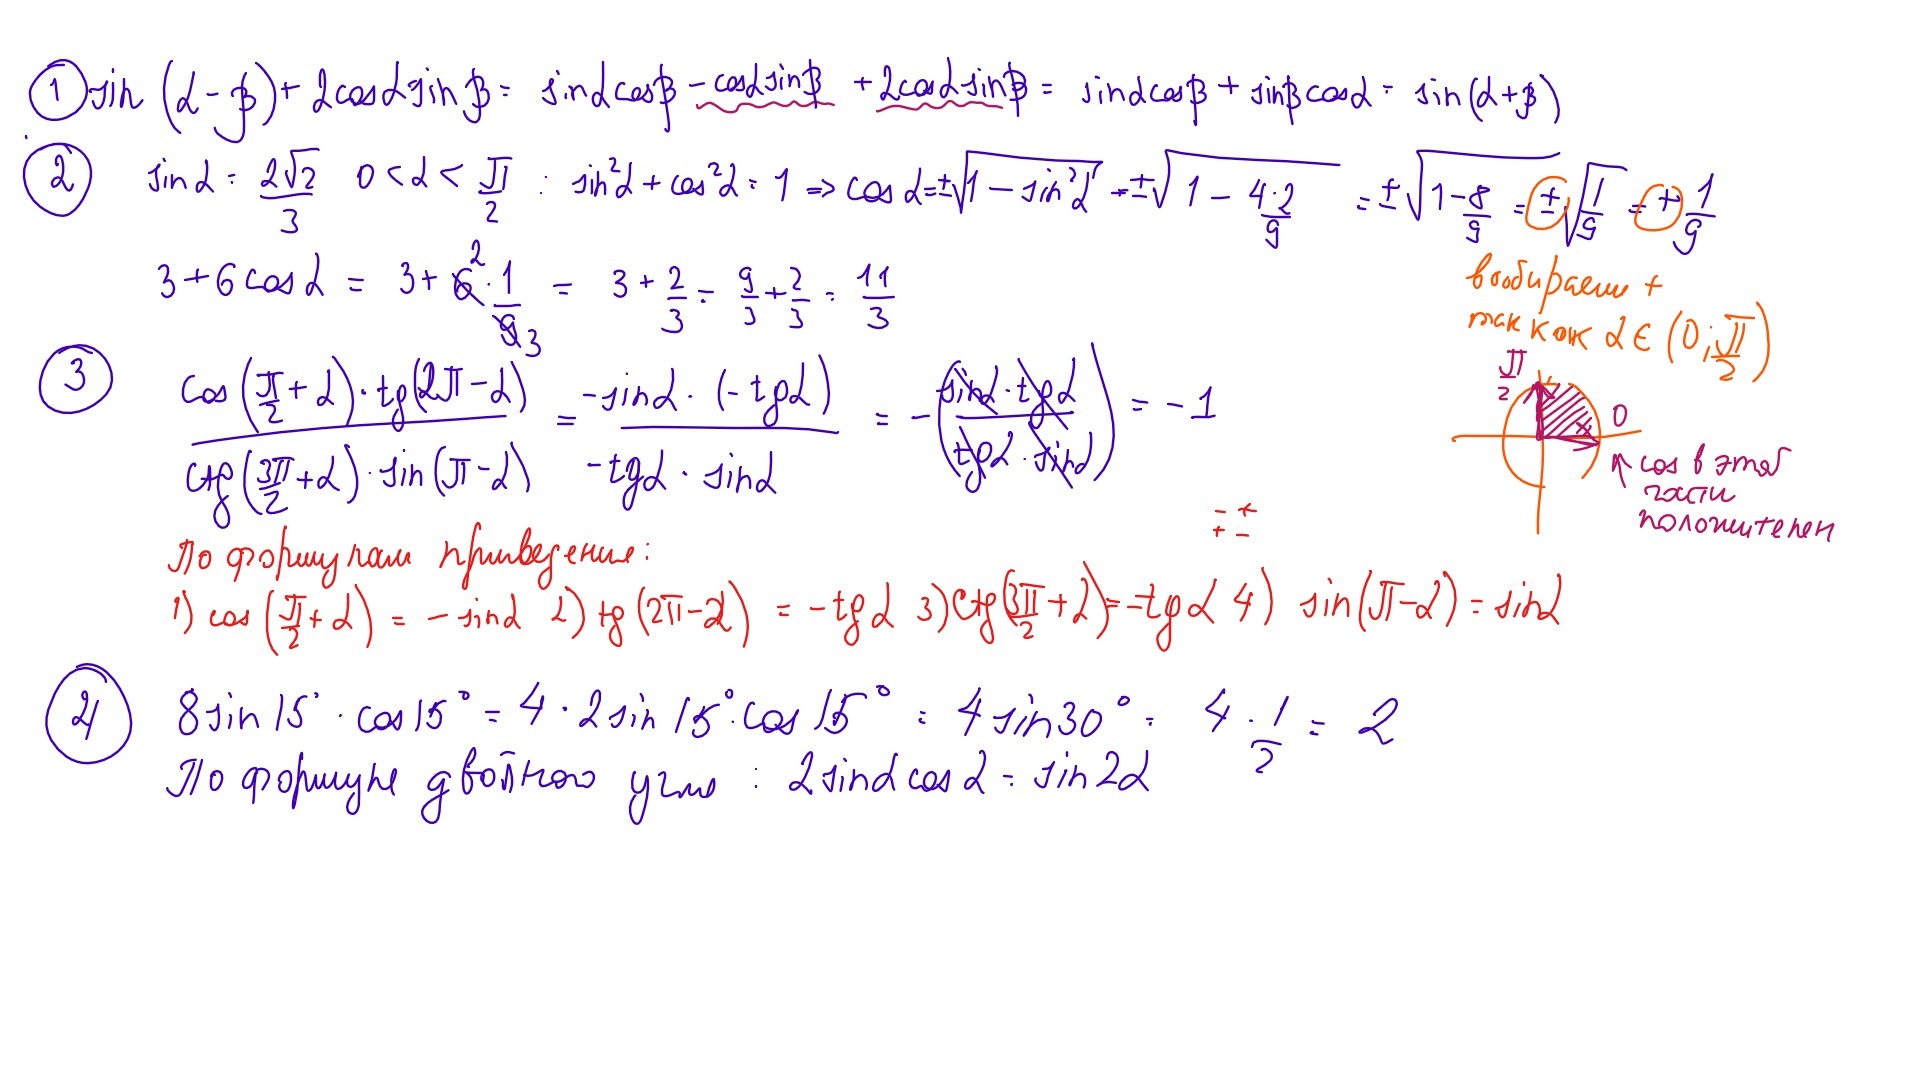 ① sin (α - β) + 2cosα sinβ = sinα cosβ - cosα sinβ + 2cosα sinβ = sinα cosβ + sinβ cosα = sin(α+β)
② sin α = 2√2/3 0 < α < π/2 : sin²α + cos²α = 1 => cos α = ±√(1 - sin²α) = ±√(1 - 4·2/9) = ±√(1 - 8/9) = ±√(1/9) = + 1/9
3 + 6 cos α = 3 + 6² · 1/9₃ = 3 + 2/3 = 9/3 + 2/3 = 11/3
выбираем +
так как α ∈ (0; π/2)
π/2
0
cos в этой
части
положителен
③ cos(π/2 + α) · tg(2π - α) / ctg(3π/2 + α) · sin(π - α) = -sinα · (-tgα) / -tgα · sinα = -(sinα · tgα / tgα · sinα) = -1
- +
+ -
По формулам приведения:
1) cos(π/2 + α) = - sinα 2) tg(2π - α) = - tgα 3) ctg(3π/2 + α) = -tgα 4) sin(π - α) = sinα
④ 8 sin 15° · cos 15° = 4 · 2 sin 15° · cos 15° = 4 sin 30° = 4 · 1/2 = 2
По формуле двойного угла : 2 sinα cos α = sin 2α